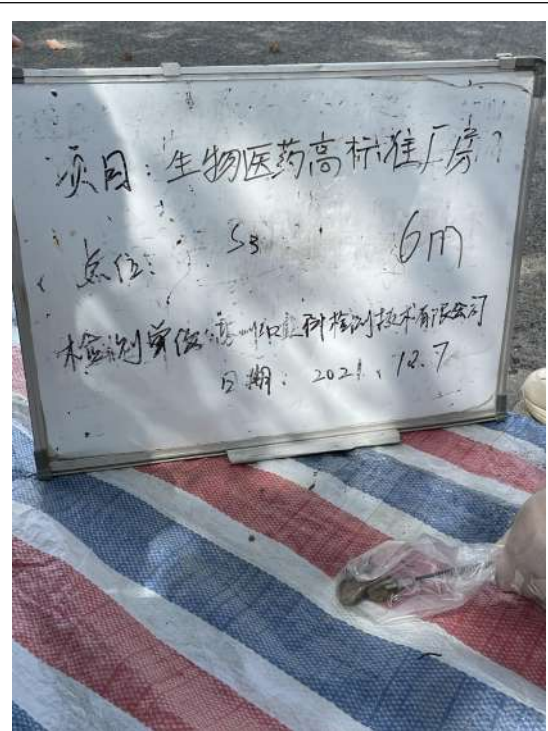 项目：生物医药高标准厂房
点位：S3 6m
检测单位：苏州 科检测技术有限公司
日期：2021.12.7